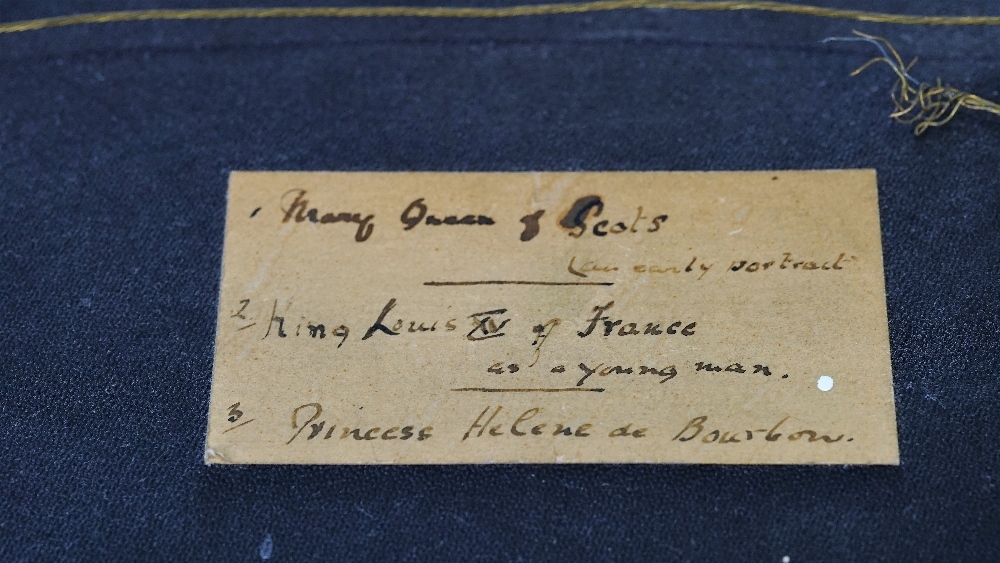 1 Mary Queen of Scots
(an early portrait
2/ King Louis XV of France
as a young man.
3/ Princess Helene de Bourbon.